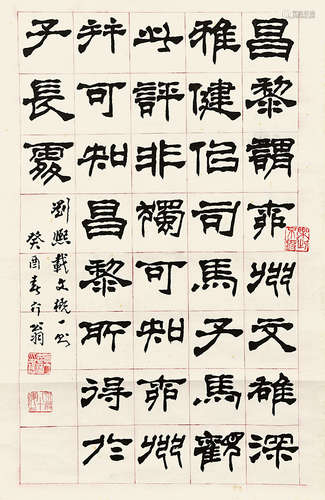 昌黎謂柳州文雄深
雅健佀司馬子馬觀
此評非獨可知柳州
并可知昌黎所得於
子長處
劉熙載文概一則
癸酉春行翁